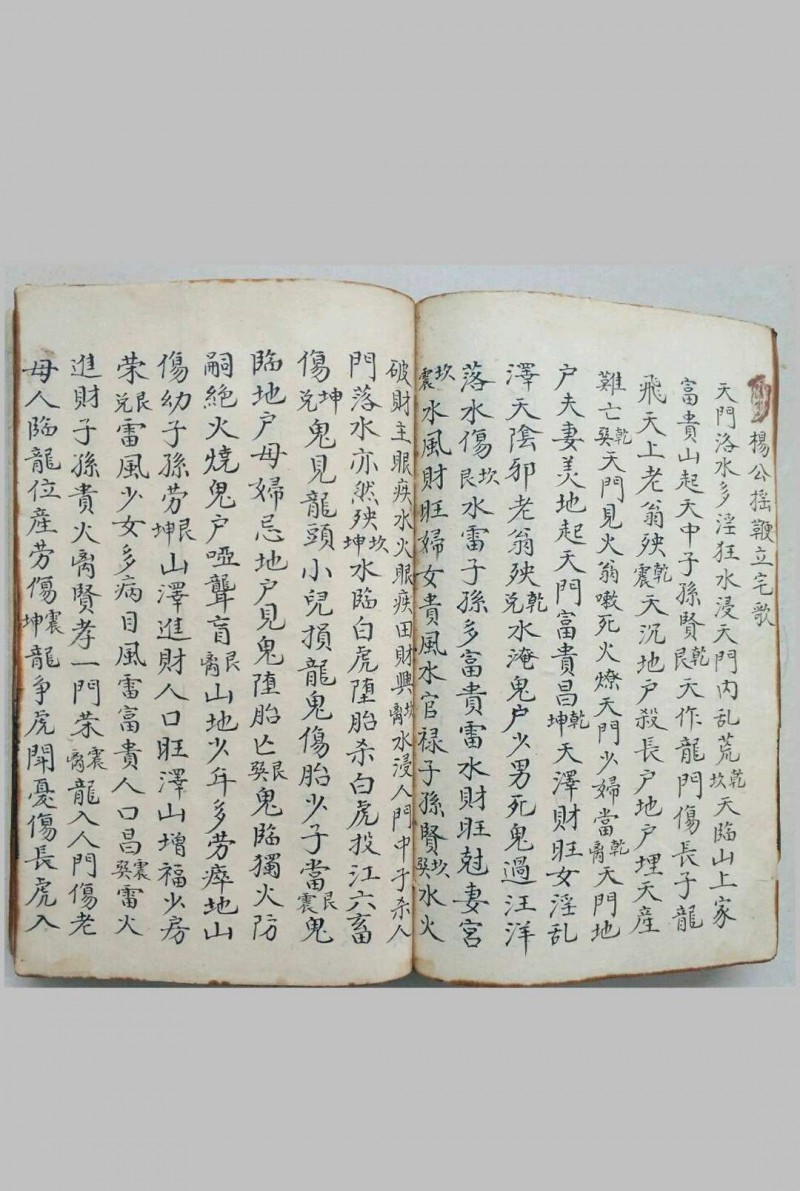 楊公摇鞭立宅歌
天門洛水多淫狂水浸天門内乱荒乾坎天臨山上家
富貴山起天中子孫賢乾艮天作龍門傷長子龍
飛天上老翁殃乾震天沉地户殺長户地户埋天産
難亡乾巽天門見火翁嗽死火燎天門少婦當乾离天門地
户夫妻羙地起天門富貴昌乾坤天澤財旺女淫乱
澤天陰邪老翁殃乾兑水淹鬼户少男死鬼過汪洋
落水傷坎艮水雷子孫多富貴雷水財旺尅妻宫
坎震水風財旺婦女貴風水官禄子孫賢坎巽水火
破財主眼疾水火眼疾田財興坎离水浸人門中子杀人
門落水亦然殃坎坤水臨白虎堕胎杀白虎投江六畜
傷坤兑鬼見龍頭小兒損龍鬼傷胎少子當艮震鬼
臨地户母婦忌地户見鬼堕胎亡艮巽鬼臨獨火防
嗣絶火燒鬼户啞聾盲艮离山地少年多劳瘁地山
傷幼子孫劳艮坤山澤進財人口旺澤山增福少房
荣艮兑雷風少女多病目風雷富貴人口昌震巽雷火
進財子孫貴火离賢孝一門荣震离龍入人門傷老
母人臨龍位産劳傷震坤龍争虎閗憂傷長虎入